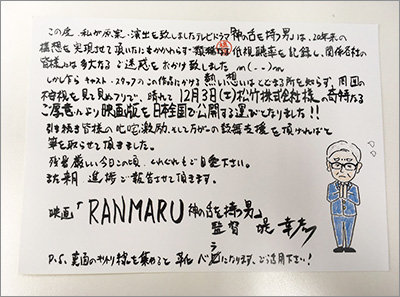 この度、私が原案・演出を致しましたテレビドラマ「神の舌を持つ男」は、20年来の
構想を実現させて頂いたにもかかわらず 超 低視聴率を記録し、関係各位の
皆様には多大なるご迷惑をおかけ致しましたm(_ _)m
しかしながら キャスト・スタッフのこの作品にかける熱い想いはとどまる所を知らず、周囲の
不信視を見て見ぬフリで、晴れて 12月3日(土)松竹株式会社様の奇特なる
ご厚意により映画版を日本全国で公開する運びとなりました!!
引き続き皆様の叱咤激励、そして万が一の鼓舞支援を頂ければと
筆を取らせて頂きました。
残暑厳しい今日この頃、くれぐれもご自愛下さい。
また来月 進捗ご報告させて頂きます。
映画「RANMARU 神の舌を持つ男」
監督 堤 幸彦
P.S. 裏面のキリトリ線を集めると 平仏 ベラになります。ご活用下さい!